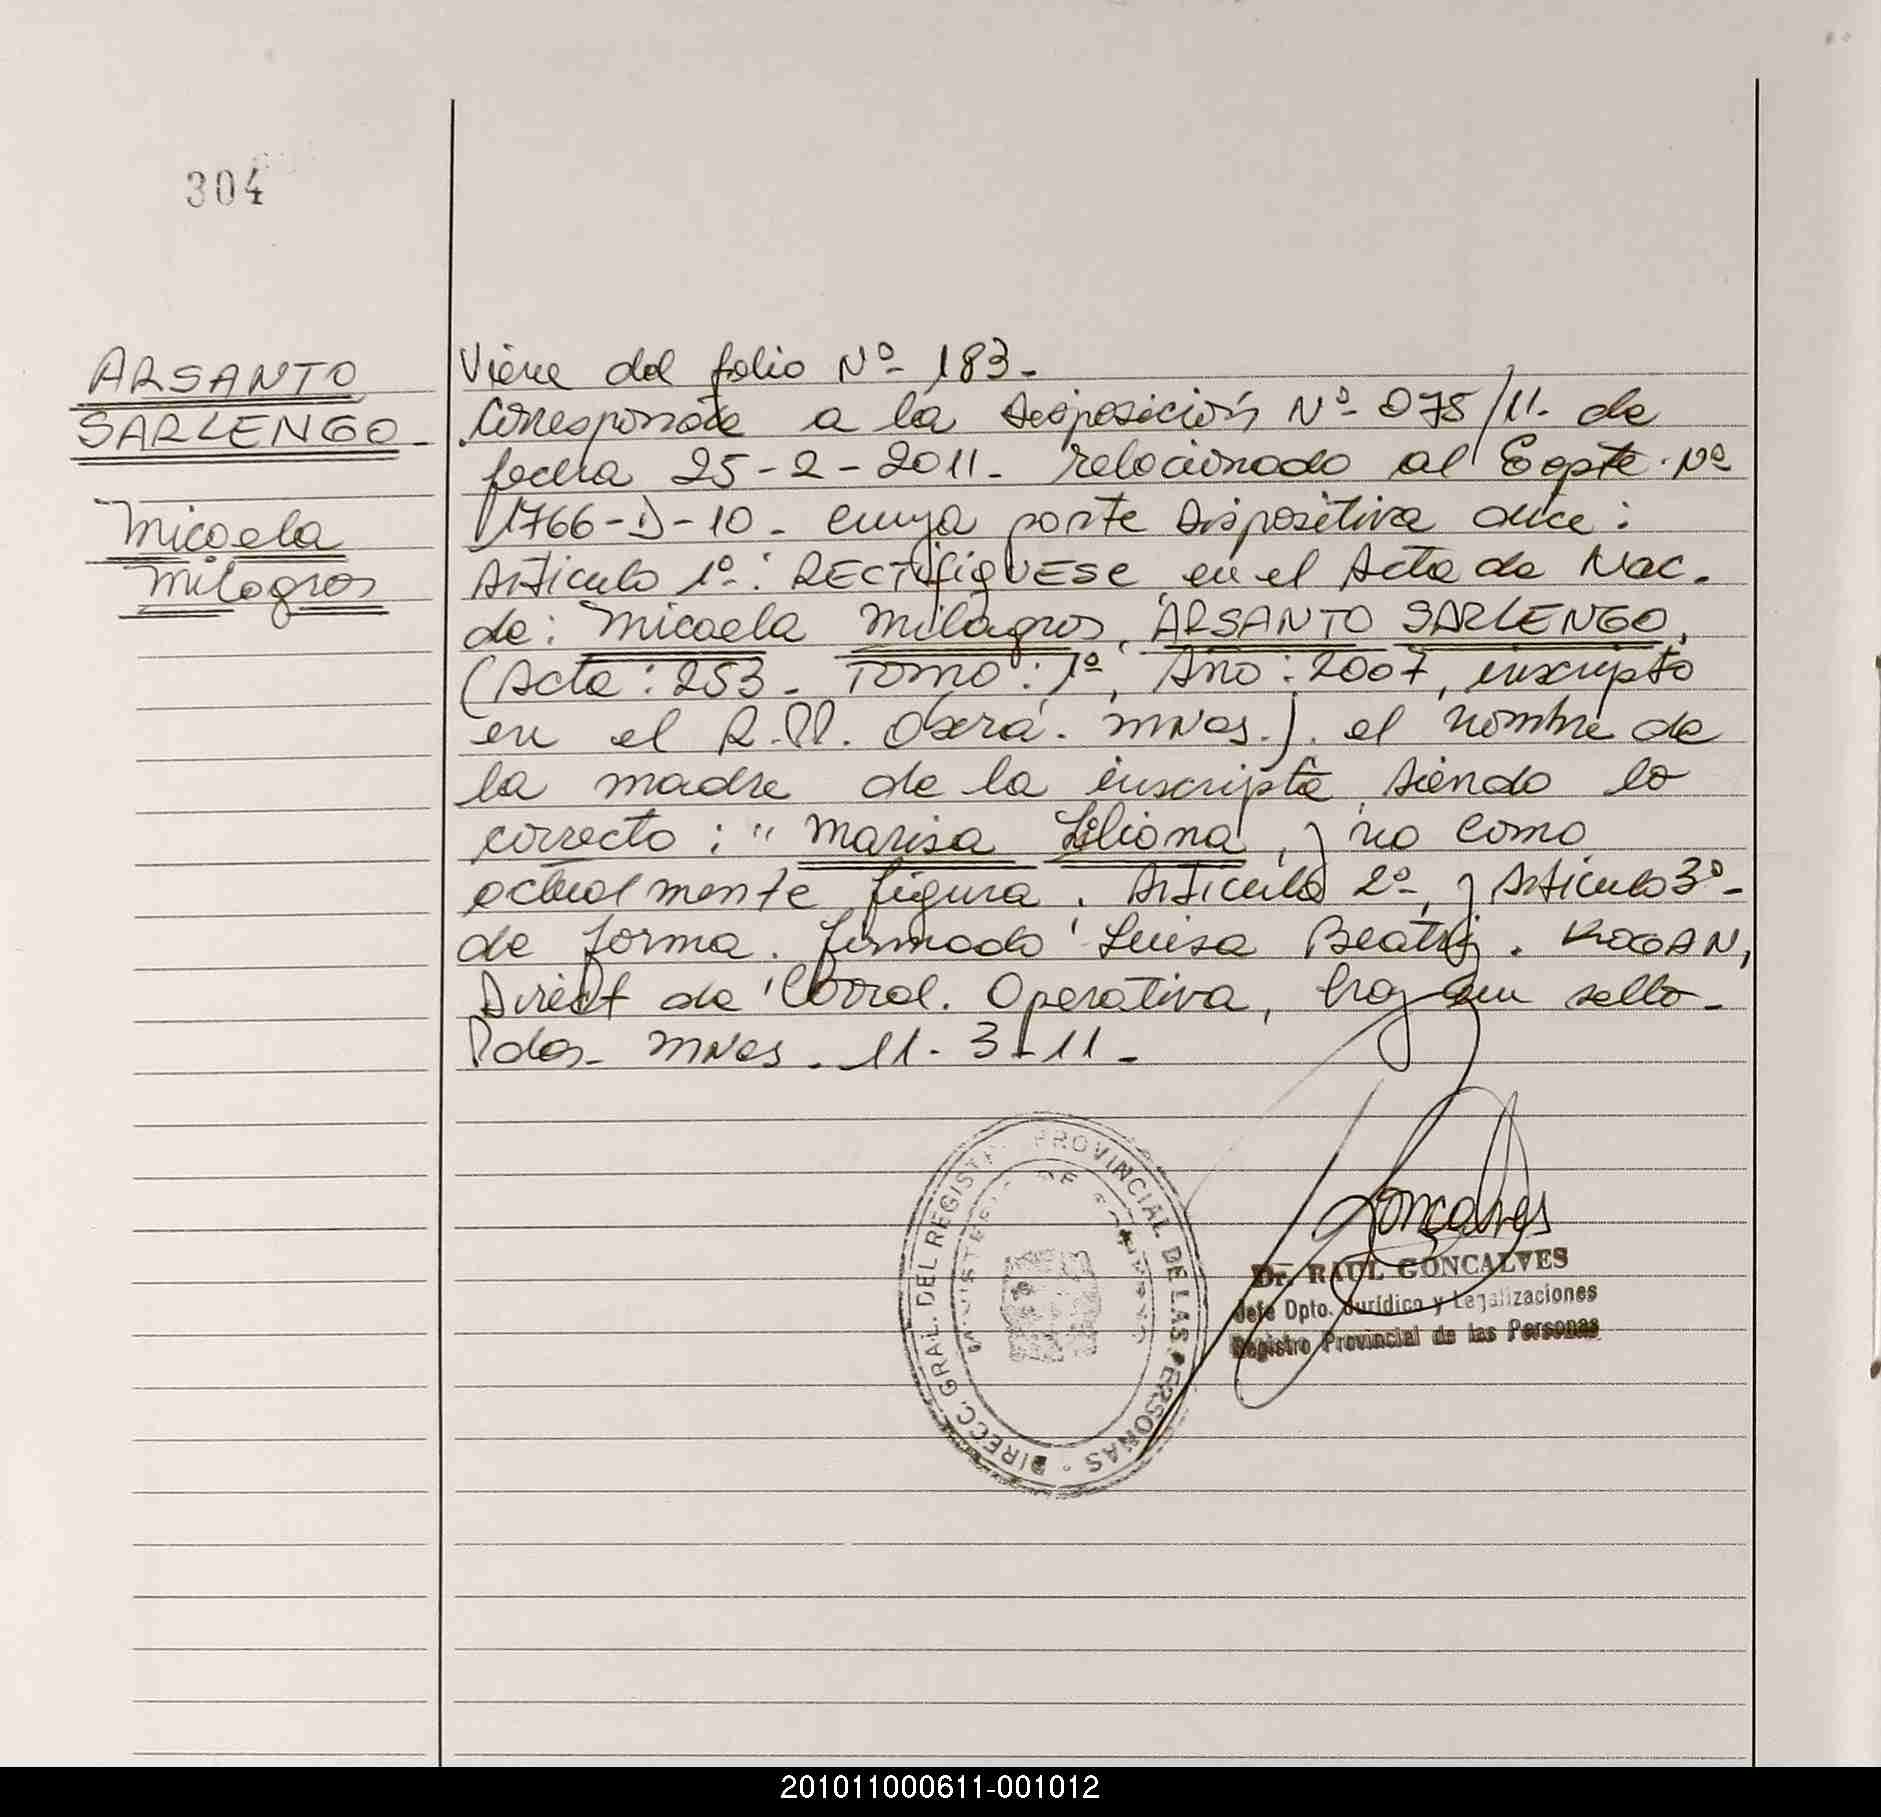 304
ARSANTO
SARLENGO-
Micaela
Milagros
Viene del folio Nº 183-
Corresponde a la Disposición Nº 075/11. de
fecha 25-2-2011- relacionado al Expte. Nº
1766-D-10- cuya parte dispositiva dice:
Artículo 1º: RECTIFIQUESE en el Acta de Nac.
de: Micaela Milagros, ARSANTO SARLENGO,
(Acta: 253- Tomo: 1º, Año: 2007, inscripto
en el R.PP. Oberá. MNES.). el nombre de
la madre de la inscripta, siendo lo
correcto: "Marisa Liliana, y no como
actualmente figura. Artículo 2º, y Artículo 3º-
de forma. firmado Luisa Beatriz. KOGAN,
Direct de Coord. Operativa, hay un sello-
Pdas- MNES. 11-3-11-
DIRECC. GRAL. DEL REGISTRO PROVINCIAL DE LAS PERSONAS
MINISTERIO DE GOBIERNO
Goncalves
Dr. RAUL GONCALVES
Jefe Dpto. Jurídico y Legalizaciones
Registro Provincial de las Personas
201011000611-001012